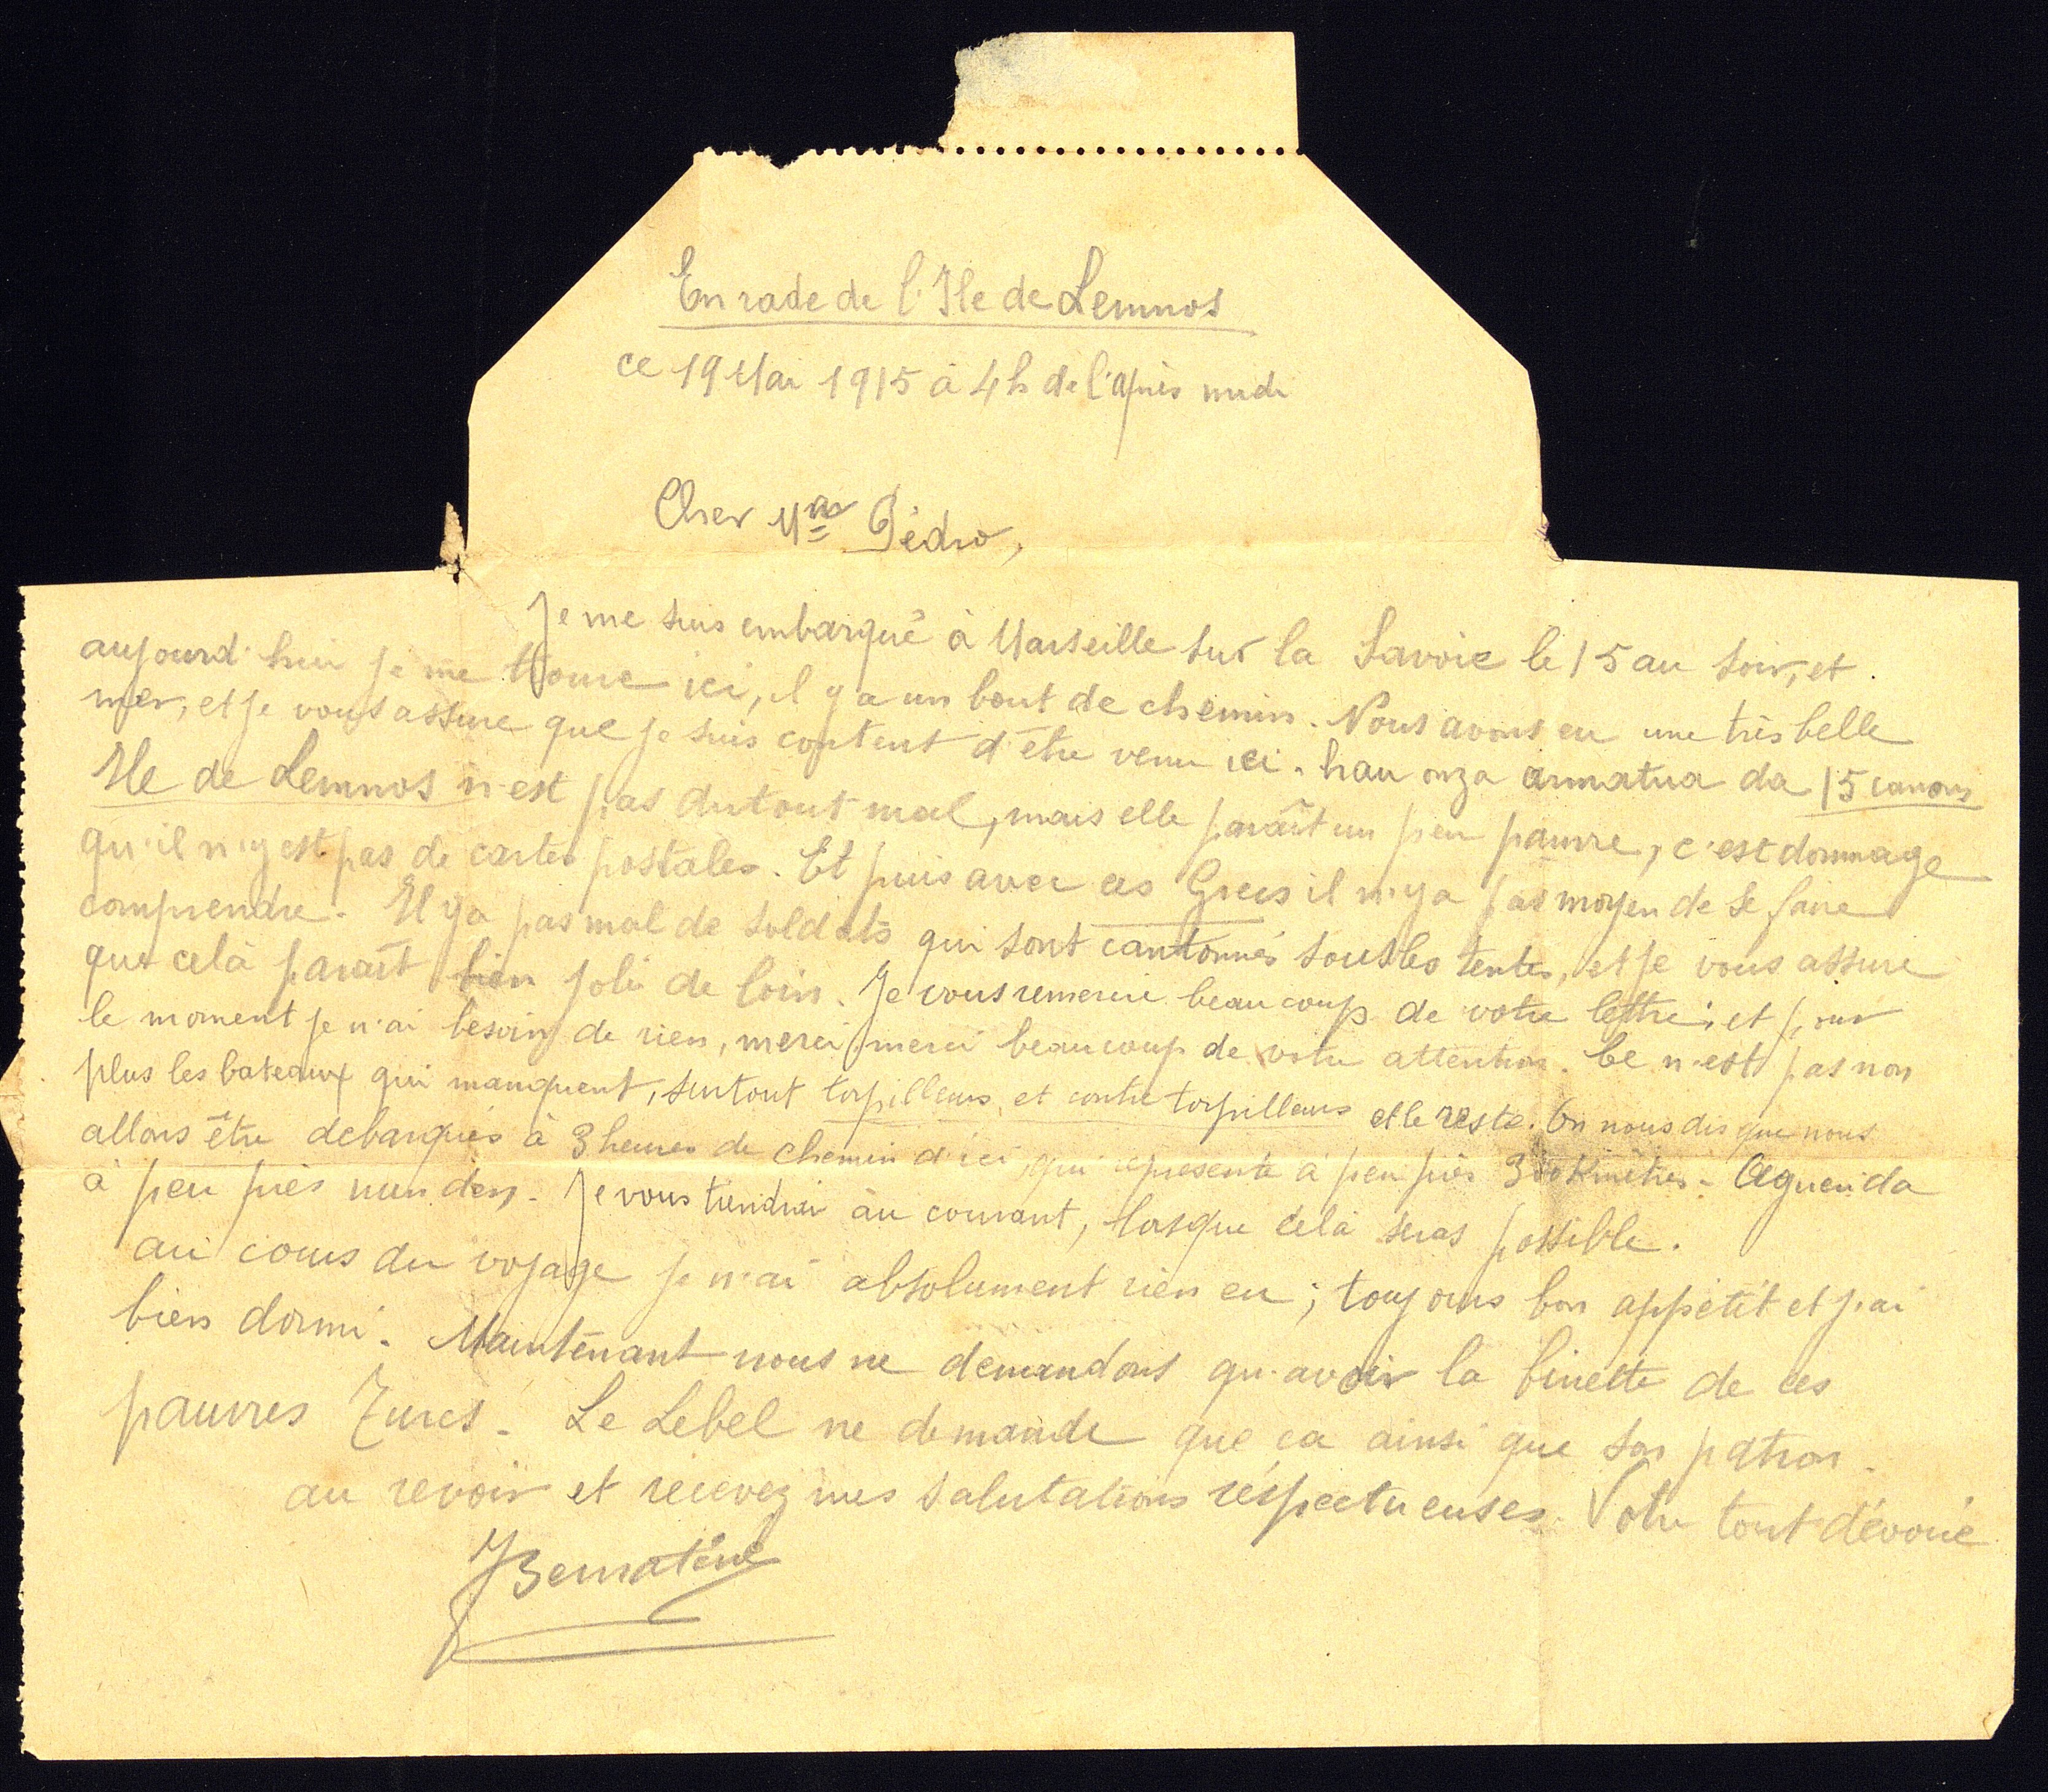 En rade de l'Ile de Lemnos
ce 19 Mai 1915 à 4h de l'après midi
Cher Mr Pédro,
Je me suis embarqué à Marseille sur la Savoie le 15 au soir, et
aujourd'hui je me trouve ici, il y a un bout de chemin. Nous avons eu une très belle
mer, et je vous assure que je suis content d'être venu ici. hau onza armatua da 15 canons
Ile de Lemnos n'est pas du tout mal, mais elle paraît un peu pauvre, c'est dommage
qu'il n'y est pas de cartes postales. Et puis avec ces Grecs il n'y a pas moyen de se faire
comprendre. Il y a pas mal de soldats qui sont cantonnés sous les tentes, et je vous assure
que celà paraît bien joli de loin. Je vous remercie beaucoup de votre lettre; et pour
le moment je n'ai besoin de rien, merci, merci beaucoup de votre attention. Ce n'est pas non
plus les bateaux qui manquent, surtout torpilleurs et contre torpilleurs et le reste. On nous dis que nous
allons être debarqués à 3 heures de chemin d'ici, qui represente à peu près 300 Kmètres. Aguenida
à peu près nun den. Je vous tiendrai au courant, lorsque celà seras possible.
au cours du voyage je n'ai absolument rien eu; toujours bon appétit et j'ai
bien dormi. Maintenant nous ne demandons qu'avoir la binette de ces
pauvres Turcs. Le Lebel ne demande que ça ainsi que son patron.
au revoir et recevez mes salutations réspectueuses. Votre tout dévoué